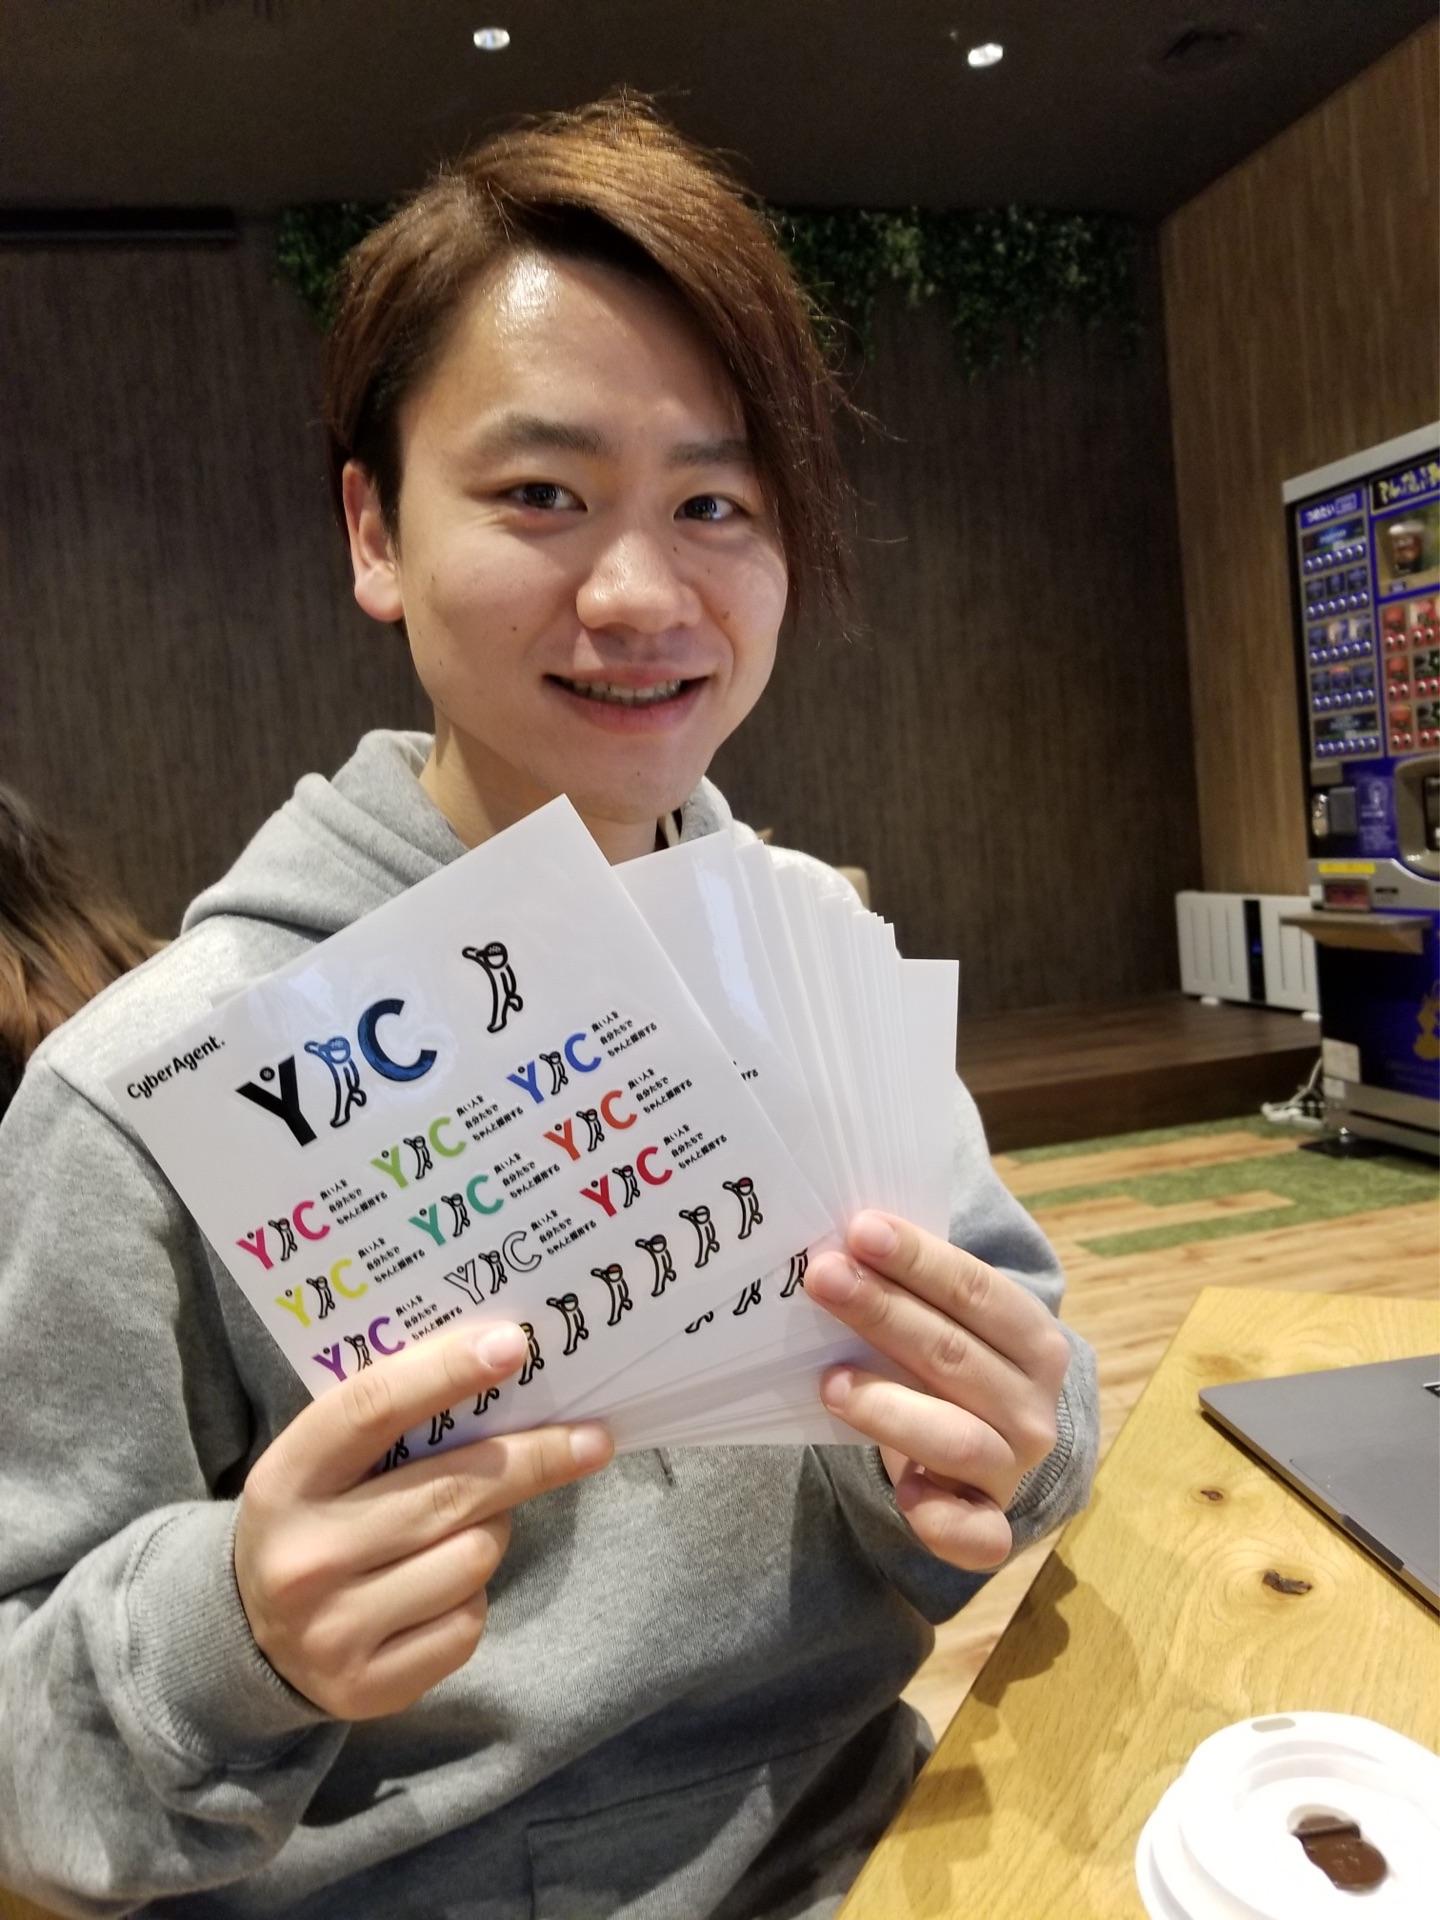 CyberAgent.
YJC
YJC
良い人を
自分たちで
ちゃんと採用する
YJC
良い人を
自分たちで
ちゃんと採用する
YJC
良い人を
自分たちで
ちゃんと採用する
YJC
良い人を
自分たちで
ちゃんと採用する
YJC
良い人を
自分たちで
ちゃんと採用する
YJC
良い人を
自分たちで
ちゃんと採用する
YJC
良い人を
自分たちで
ちゃんと採用する
YJC
良い人を
自分たちで
ちゃんと採用する
YJC
良い人を
自分たちで
ちゃんと採用する
つめたい